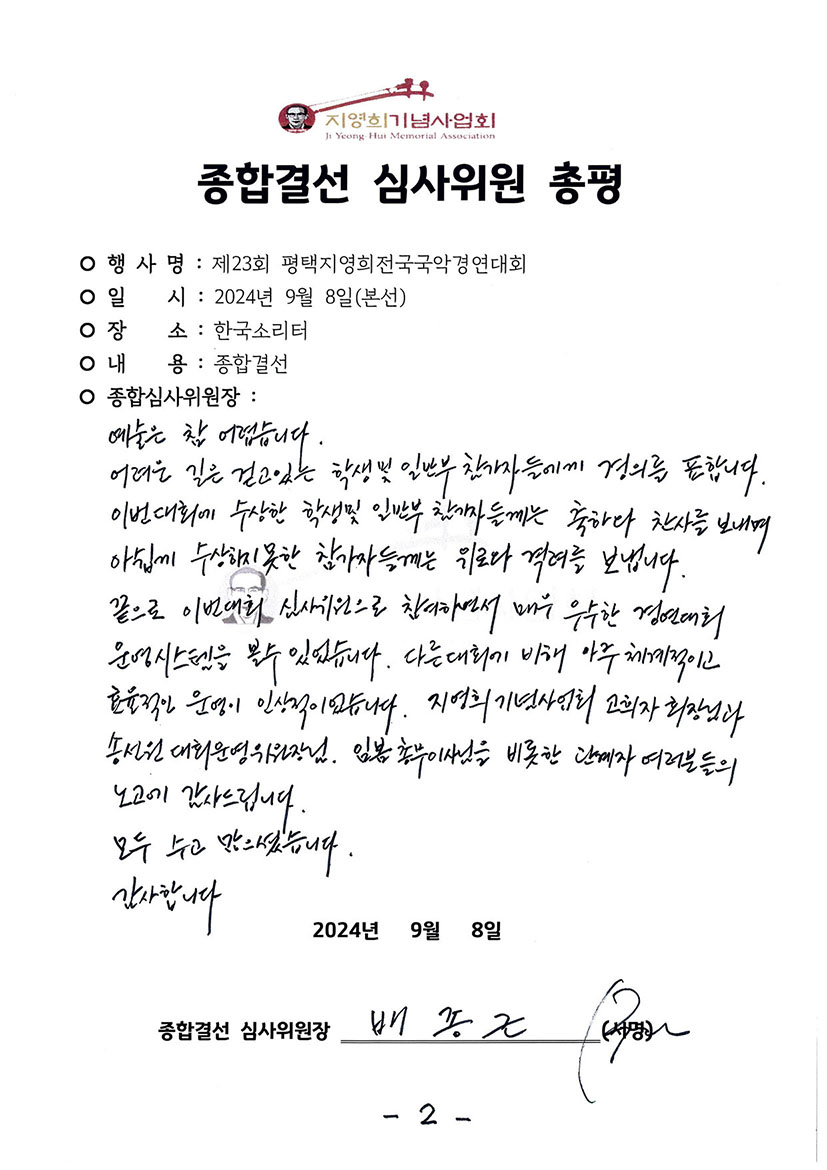 지영희기념사업회
Ji Yeong-Hui Memorial Association
종합결선 심사위원 총평
○ 행 사 명 : 제23회 평택지영희전국국악경연대회
○ 일 시 : 2024년 9월 8일(본선)
○ 장 소 : 한국소리터
○ 내 용 : 종합결선
○ 종합심사위원장 :
예술은 참 어렵습니다.
어려운 길은 걷고있는 학생및 일반부 참가자들에게 경의를 표합니다.
이번대회에 수상한 학생및 일반부 참가자들께는 축하다 찬사를 보내며
아쉽게 수상하지못한 참가자들께는 위로다 격려를 보냅니다.
끝으로 이번대회 심사위원으로 참여하면서 매우 우수한 경연대회
운영시스템을 볼수 있었습니다. 다른대회에 비해 아주 체계적이고
효율적인 운영이 인상적이었습니다. 지영희기념사업회 고희자 회장님과
송선원 대회운영위원장님. 임봄 총무이사님을 비롯한 관계자 여러분들의
노고에 감사드립니다.
모두 수고 많으셨습니다.
감사합니다
2024년 9월 8일
종합결선 심사위원장 배 종 근 (서명)
- 2 -